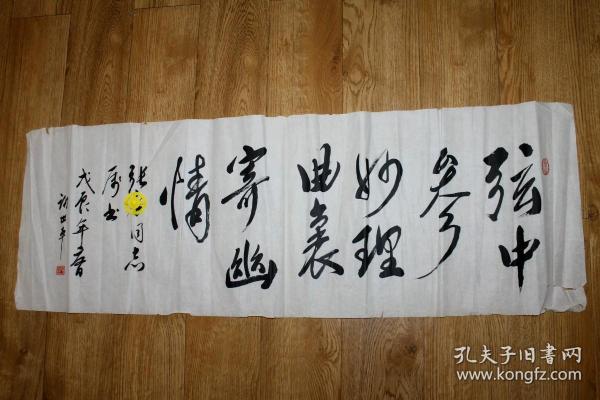 弦中
参
妙理
曲里
寄幽
情
张
同志
属书
戊辰年春
孔夫子旧书网
www.kongfz.com